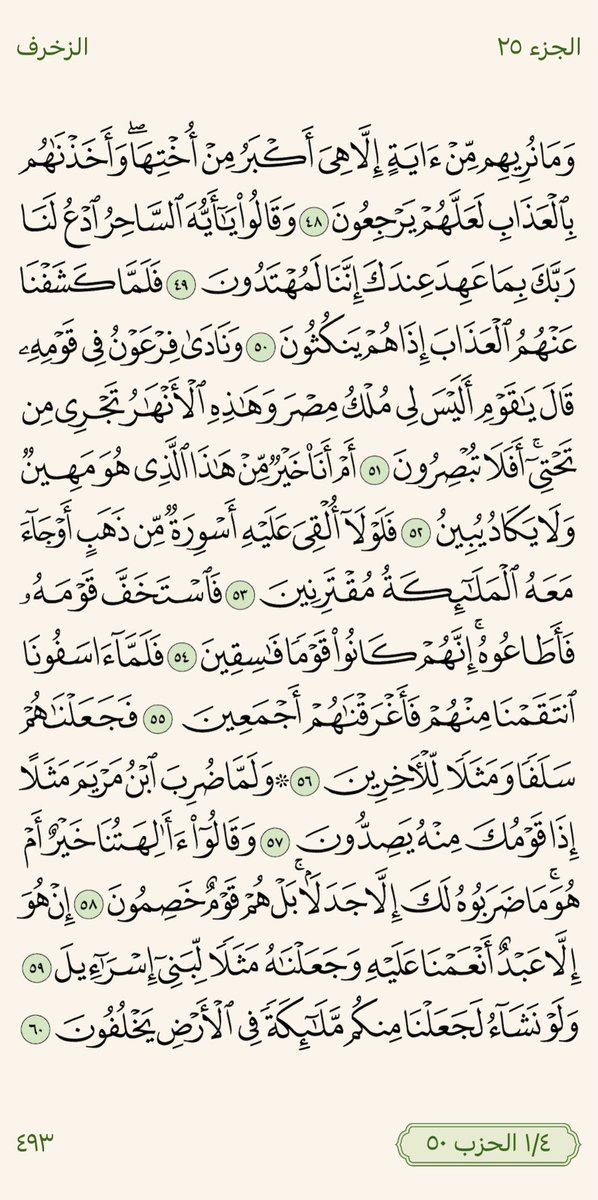 الجزء ٢٥
الزخرف
وَمَا نُرِيهِم مِّنْ ءَايَةٍ إِلَّا هِيَ أَكْبَرُ مِنْ أُخْتِهَاۖ وَأَخَذْنَٰهُم
بِٱلْعَذَابِ لَعَلَّهُمْ يَرْجِعُونَ ٤٨ وَقَالُوا۟ يَٰٓأَيُّهَ ٱلسَّاحِرُ ٱدْعُ لَنَا
رَبَّكَ بِمَا عَهِدَ عِندَكَ إِنَّنَا لَمُهْتَدُونَ ٤٩ فَلَمَّا كَشَفْنَا
عَنْهُمُ ٱلْعَذَابَ إِذَا هُمْ يَنكُثُونَ ٥٠ وَنَادَىٰ فِرْعَوْنُ فِى قَوْمِهِۦ
قَالَ يَٰقَوْمِ أَلَيْسَ لِى مُلْكُ مِصْرَ وَهَٰذِهِ ٱلْأَنْهَٰرُ تَجْرِى مِن
تَحْتِىٓۚ أَفَلَا تُبْصِرُونَ ٥١ أَمْ أَنَا۠ خَيْرٌ مِّنْ هَٰذَا ٱلَّذِى هُوَ مَهِينٌ
وَلَا يَكَادُ يُبِينُ ٥٢ فَلَوْلَآ أُلْقِىَ عَلَيْهِ أَسْوِرَةٌ مِّن ذَهَبٍ أَوْ جَآءَ
مَعَهُ ٱلْمَلَٰٓئِكَةُ مُقْتَرِنِينَ ٥٣ فَٱسْتَخَفَّ قَوْمَهُۥ
فَأَطَاعُوهُۚ إِنَّهُمْ كَانُوا۟ قَوْمًا فَٰسِقِينَ ٥٤ فَلَمَّآ ءَاسَفُونَا
ٱنتَقَمْنَا مِنْهُمْ فَأَغْرَقْنَٰهُمْ أَجْمَعِينَ ٥٥ فَجَعَلْنَٰهُمْ
سَلَفًا وَمَثَلًا لِّلْءَاخِرِينَ ٥٦ ۞ وَلَمَّا ضُرِبَ ٱبْنُ مَرْيَمَ مَثَلًا
إِذَا قَوْمُكَ مِنْهُ يَصِدُّونَ ٥٧ وَقَالُوٓا۟ ءَأَٰلِهَتُنَا خَيْرٌ أَمْ
هُوَۚ مَا ضَرَبُوهُ لَكَ إِلَّا جَدَلَۢاۚ بَلْ هُمْ قَوْمٌ خَصِمُونَ ٥٨ إِنْ هُوَ
إِلَّا عَبْدٌ أَنْعَمْنَا عَلَيْهِ وَجَعَلْنَٰهُ مَثَلًا لِّبَنِىٓ إِسْرَٰٓءِيلَ ٥٩
وَلَوْ نَشَآءُ لَجَعَلْنَا مِنكُم مَّلَٰٓئِكَةً فِى ٱلْأَرْضِ يَخْلُفُونَ ٦٠
١/٤ الحزب ٥٠
٤٩٣